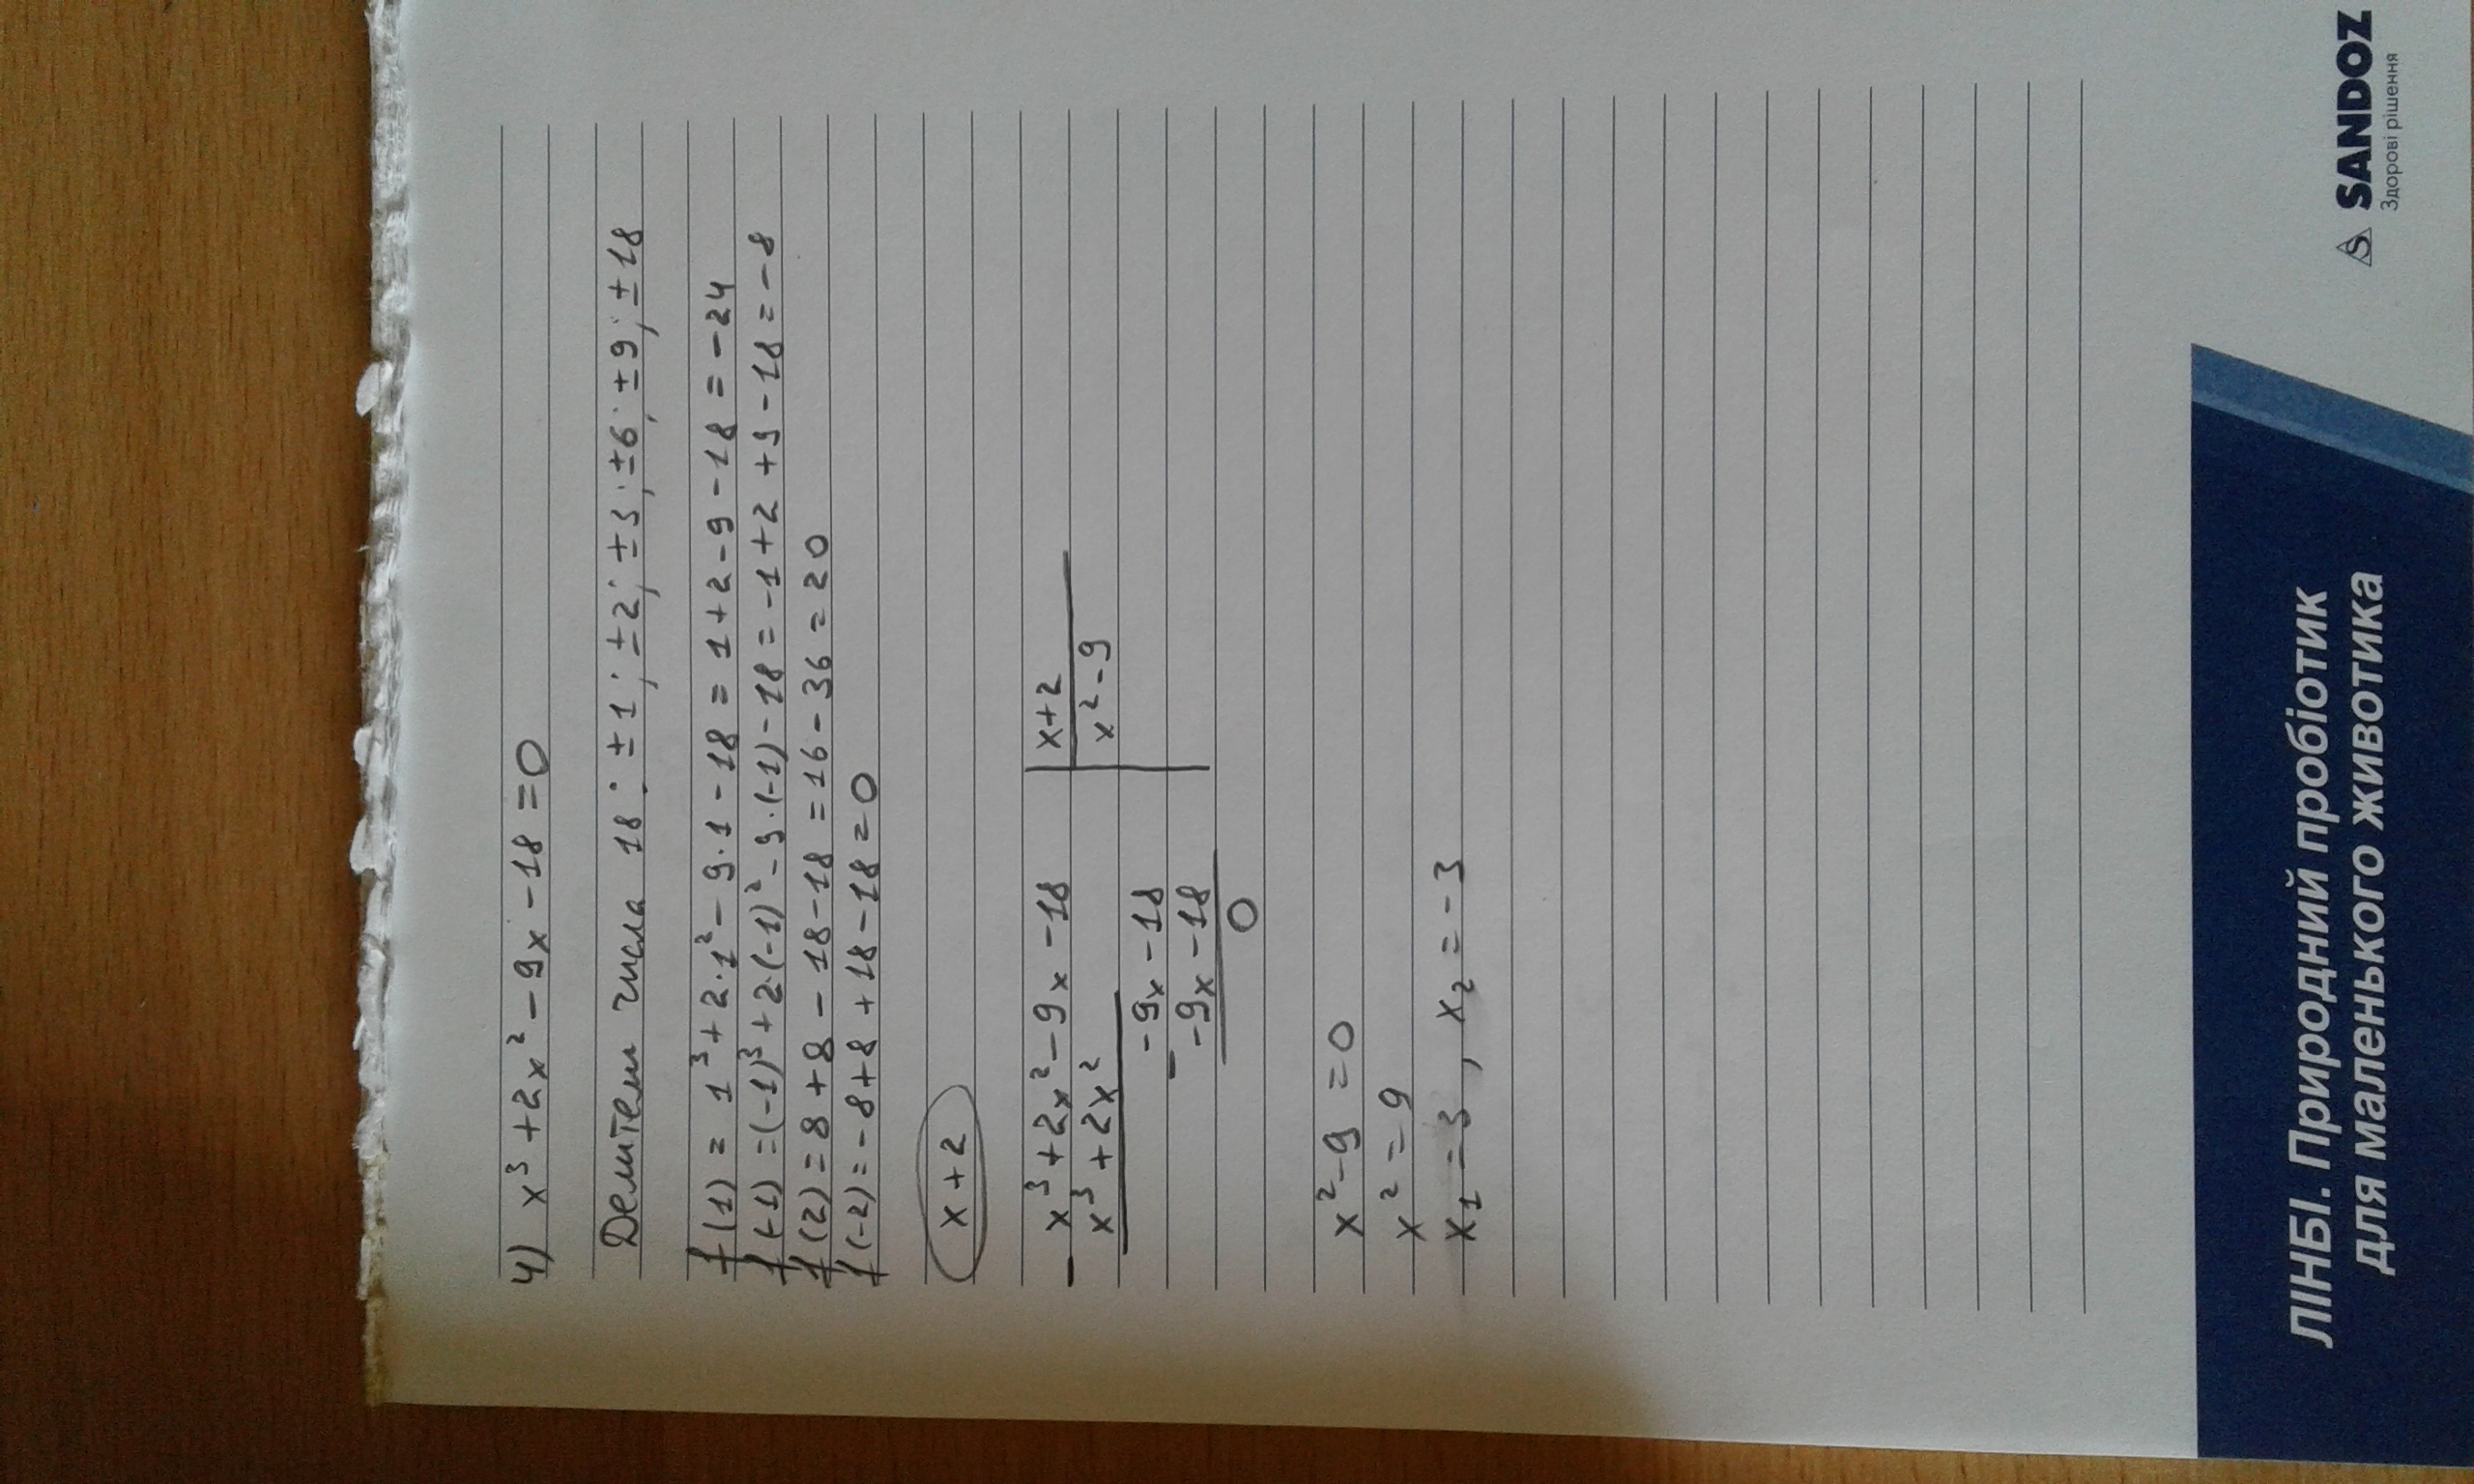 4) x³ + 2x² - 9x - 18 = 0
Делители числа 18: ±1; ±2; ±3; ±6; ±9; ±18
f(1) = 1³ + 2·1² - 9·1 - 18 = 1 + 2 - 9 - 18 = -24
f(-1) = (-1)³ + 2·(-1)² - 9·(-1) - 18 = -1 + 2 + 9 - 18 = -8
f(2) = 8 + 8 - 18 - 18 = 16 - 36 = 20
f(-2) = -8 + 8 + 18 - 18 = 0
x + 2
- x³ + 2x² - 9x - 18 | x + 2
x³ + 2x² | x² - 9
- -9x - 18
-9x - 18
0
x² - 9 = 0
x² = 9
x₁ = 3, x₂ = -3
ЛІНБІ. Природний пробіотик
для маленького животика
S SANDOZ
Здорові рішення